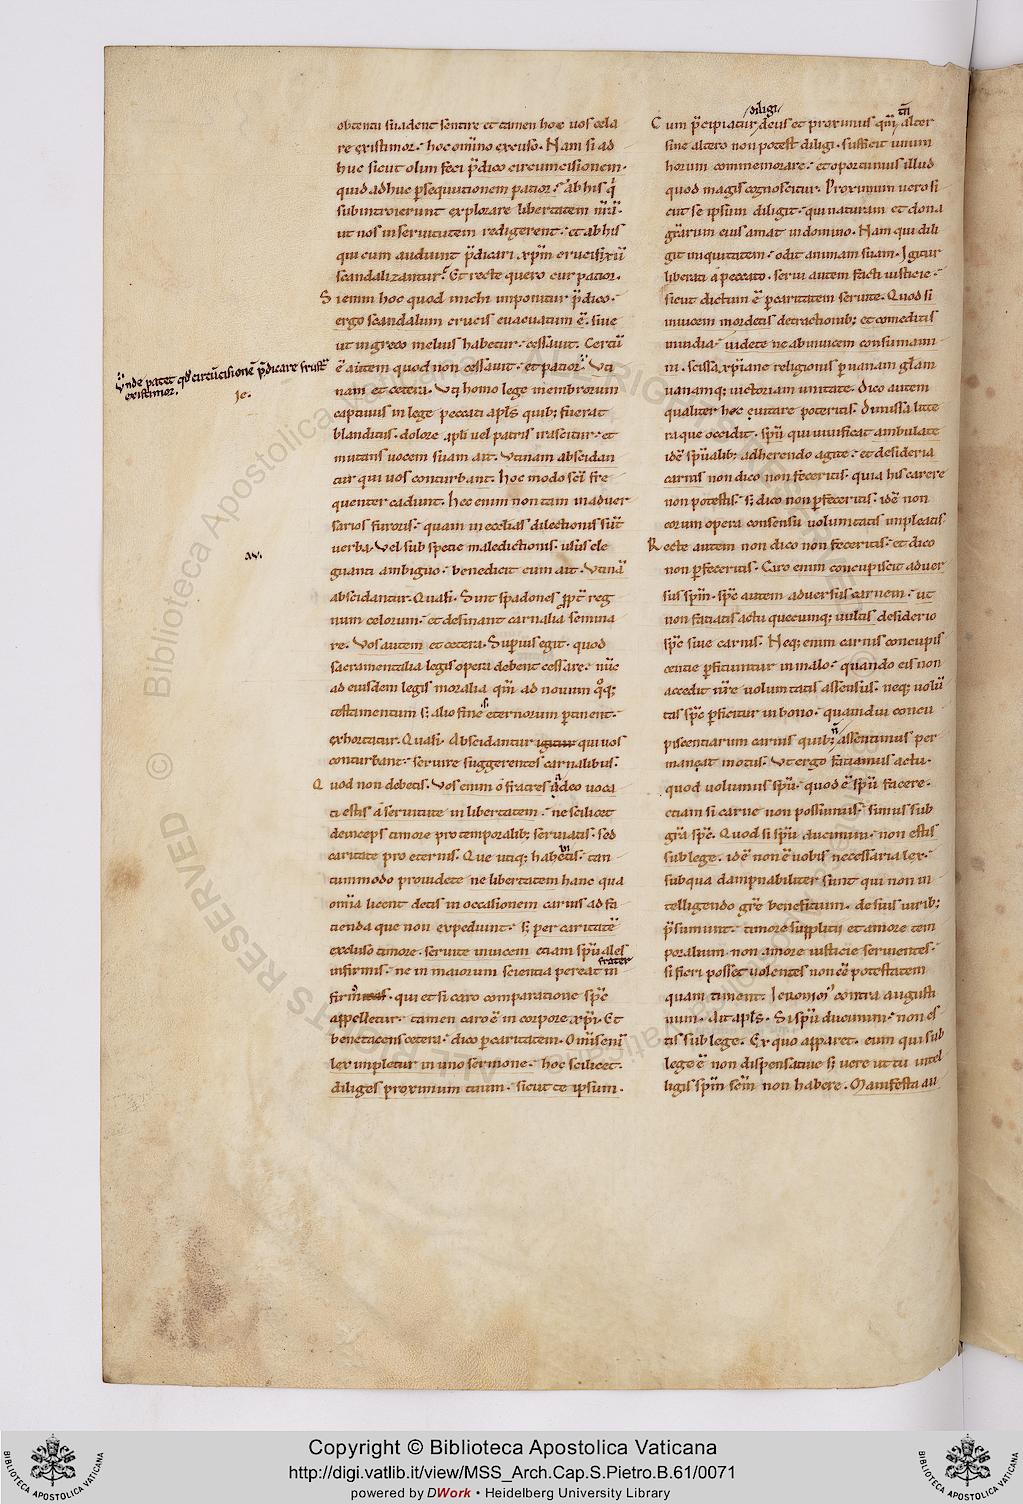 obtentu suadent sentire et tamen hoc uos cela
re existimor. hoc om̄ino excuso. Nam si ad
huc sicut olim feci p̄dico circumcisionem.
quid adhuc ꝑsequutionem patior. ab his q̇
subintroierunt explorare libertatem nr̄ā.
ut nos in seruitutem redigerent. et ab his
qui cum audiunt p̄dicari xp̄m crucifixū
scandalizantur. Et recte quero cur patior.
Si enim hoc quod michi imponitur p̄dico.
ergo scandalum crucis euacuatum ē. siue
ut in greco melius habetur. cessauit. Certū
ē autem quod non cessauit. et patior. Vti
nam et cetera. Vt homo lege membrorum
captiuus in lege peccati apl̄s quib; fuerat
blanditus. dolore apl̄i uel patris irascitur. et
mutans uocem suam ait. Vtinam abscidan
tur qui uos conturbant. hoc modo sc̄i fre
quenter cadunt. Hec enim non tam in aduer
sarios furoris. quam in ecclias dilectionis sūt
uerba. Vel sub specie maledictionis. usus ele
guanti ambiguo. benedicit cum ait. Vtinā
abscidantur. Quasi. Sint spadones ꝓpt̄ reg
num celorum. et desinant carnalia semina
re. Vos autem et cetera. Superius egit. quod
sacramentalia legis opera debent cessare. nūc
ad eiusdem legis moralia q̄m ad nouum q̊q;
testamentum s; alio fine .s. eternorum ꝑtinent.
exhortatur. Quasi. Abscidantur igitur qui uos
conturbant. seruire suggerentes carnalibus.
Quod non debetis. Vos enim ó fratres a deo uoca
ti estis á seruitute in libertatem. ne scilicet
deinceps timore pro temporalib; seruiatis. sed
caritate pro eternis. Que utiq; habetis. tan
tummodo prouidete ne libertatem hanc qua
om̄ia licent detis in occasionem carnis ad fa
cienda que non expediunt. s; per caritatē
excluso timore. seruite inuicem etiam spūales
infirmis. ne in maiorum scientia pereat in
frater
firm̊ uester. qui et si caro comparatione spc̄
appelletur. tamen caro ē in corpore xp̄i. Et
bene tacens cetera. dico ꝑ caritatem. Om̄is eni
lex impletur in uno sermone. hoc scilicet.
diliges proximum tuum. sicut te ipsum.
Vnde patet qd̄ circūcisionē p̄dicare frustr̄
existimor.
Je.
av.
diligi
tn̄
Cum p̄cipiatur deus et proximus q̄m alter
sine altero non potest diligi. sufficit unum
horum commemorare. et oportunius illud
quod magis cognoscitur. Proximum uero si
cut se ipsum diligit. qui naturam et dona
gr̄arum eius amat in domino. Nam qui dili
git iniquitatem. odit animam suam. Igitur
liberati á peccato. serui autem facti iusticie.
sicut dictum ē ꝑ caritatem seruite. Quod si
inuicem mordetis detractionib; et comeditis
inuidia. uidete ne ab inuicem consumami
ni. scissa xp̄iane religionis ꝑ inanem glām
uanamq; uictoriam unitate. Dico autem
qualiter hec euitare poteritis. Dimissa litte
ra que occidit. spū qui uiuificat ambulate
idē spūalib; adherendo agite. et desideria
carnis non dico non feceritis. quia his carere
non potestis. s; dico non ꝑfeceritis. idē non
eorum opera consensu uoluntatis impleatis.
Recte autem non dico non feceritis. et dico
non ꝑfeceritis. Caro enim concupiscit aduer
sus spm̄. spc̄ autem aduersus carnem. ut
non faciatis actu quecumq; uultis desiderio
spc̄ siue carnis. Neq; enim carnis concupis
centie ꝑficiuntur in malo. quando eis non
accedit nr̄e uoluntatis assensus. neq; uolū
tas spc̄ ꝑficitur in bono. quamdiu concu
piscentiarum carnis quib; n̄ assentimus per
maneat motus. Vt ergo faciamus actu.
quod uolumus spū. quod ē spū facere.
etiam si carne non possumus. simus sub
gr̄a spc̄. Quod si spū ducimini. non estis
sub lege. idē non ē uobis necessaria lex.
sub qua dampnabiliter sunt qui non in
telligendo gr̄e beneficium. de suis uirib;
p̄sumunt. timore supplicii et amore tem
poralium. non amore iusticie seruientes.
si fieri posset uolentes non eē potestatem
quam timent. Ieronim' contra augusti
num. Ait apl̄s. Si spū ducimini. non es
tis sub lege. Ex quo apparet. eum qui sub
lege ē non dispensatiue s; uere ut tu intel
ligis spm̄ scm̄ non habere. Manifesta au
© Biblioteca Apostolica Vaticana ALL RIGHTS RESERVED
Copyright © Biblioteca Apostolica Vaticana
http://digi.vatlib.it/view/MSS_Arch.Cap.S.Pietro.B.61/0071
powered by DWork • Heidelberg University Library
BIBLIOTECA APOSTOLICA VATICANA
BIBLIOTECA APOSTOLICA VATICANA